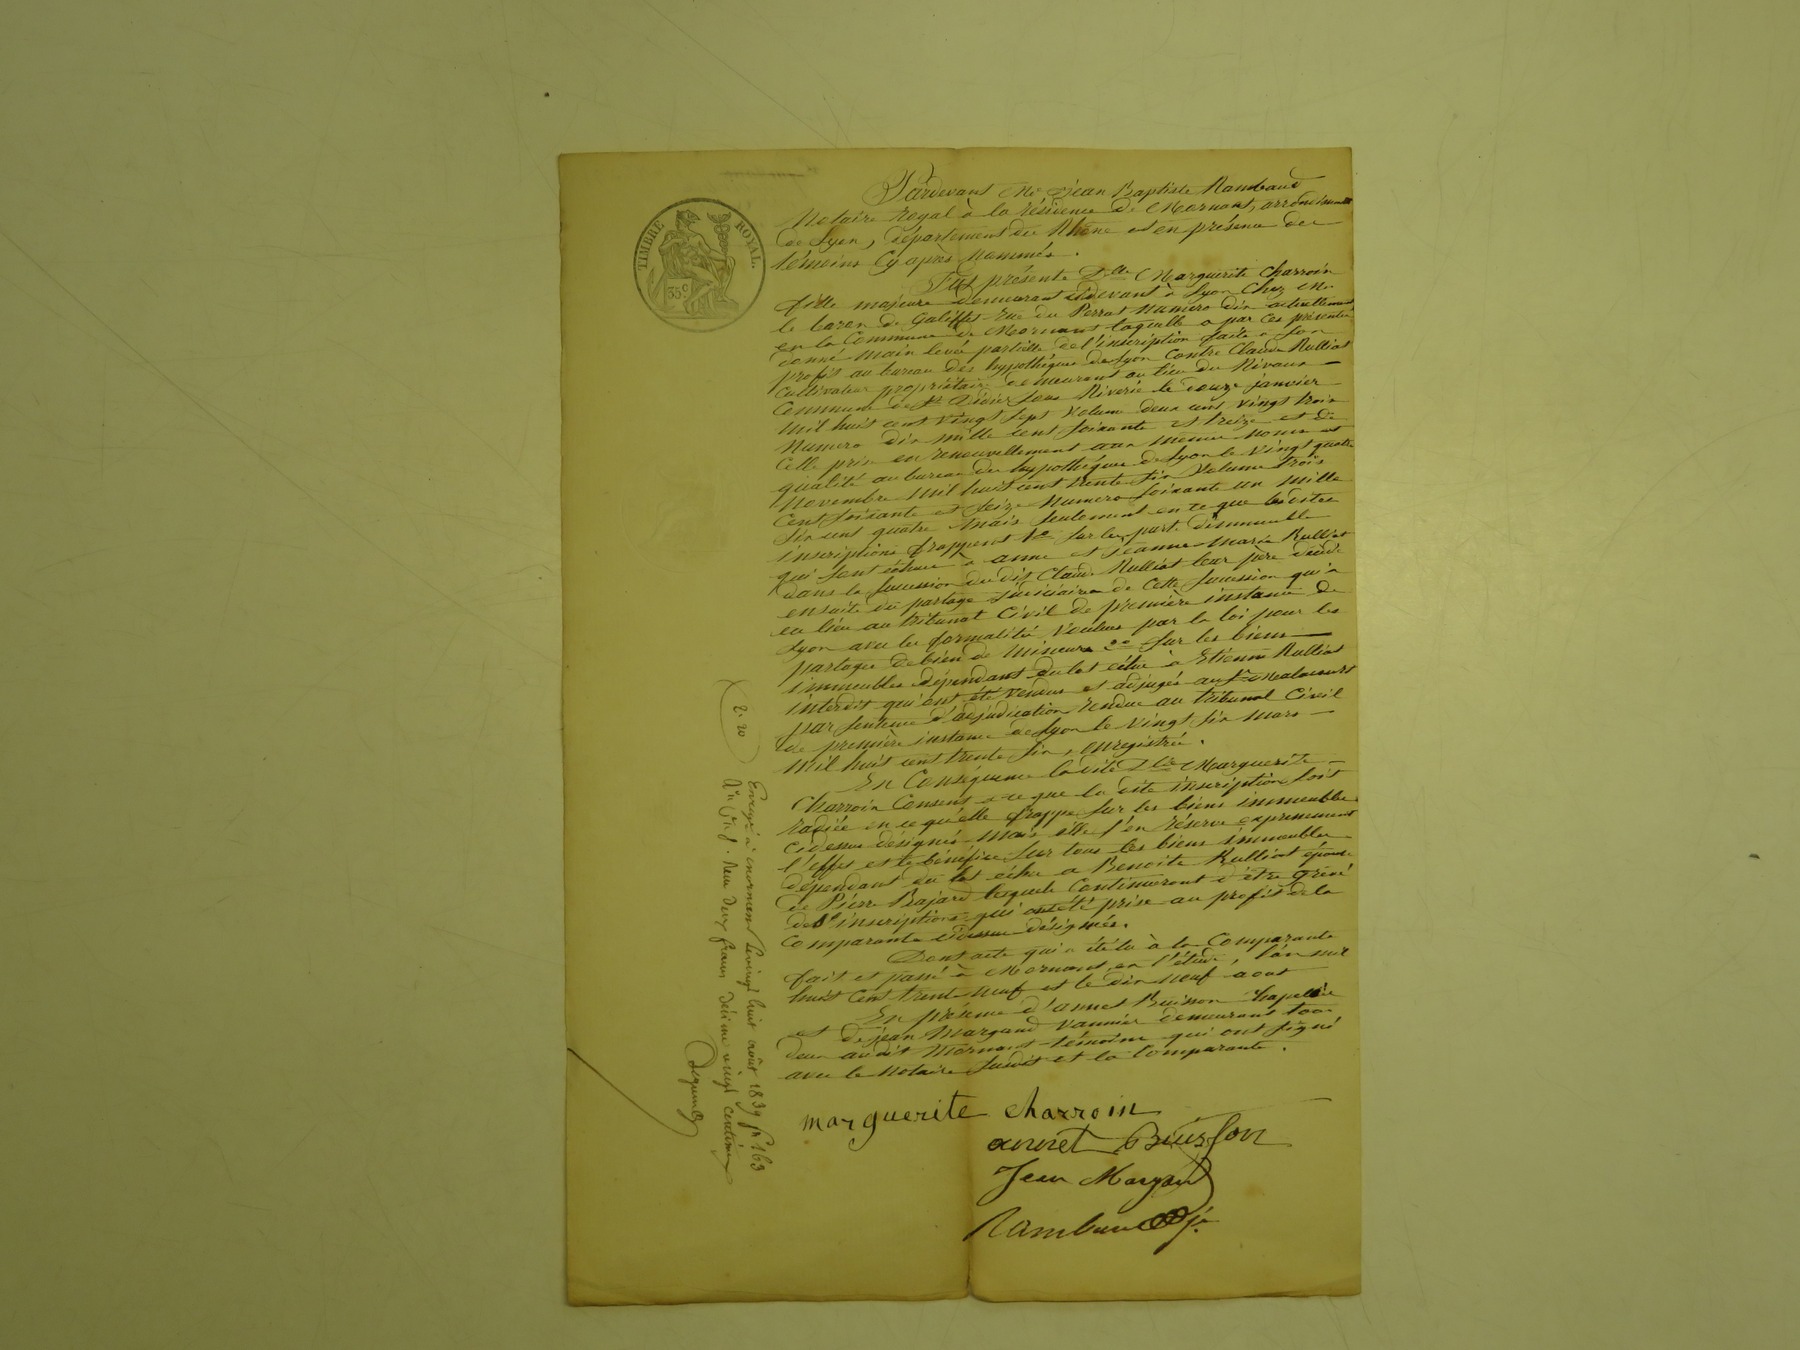 TIMBRE ROYAL.
35 c.
Pardevant Me Jean Baptiste Rambaud
Notaire royal à la résidence de Mornant, arrondissement
de Lyon, département du Rhône et en présence des
témoins cy après nommés.
Fut présente Dlle Marguerite Charroin
fille majeure demeurant cidevant à Lyon chez Mr
le baron de Galiffet rue du Perrat numero dix actuellement
en la Commune de Mornant laquelle a par ces présentes
donné main levée partielle de l'inscription faite a son
profit au bureau des hypothèques de Lyon contre Claude Rulliat
cultivateur propriétaire demeurant au lieu du Rivaux
Commune de St Didier sous Riverie le douze janvier
mil huit cent vingt sept volume deux cent vingt trois
numero dix mille cent soixante et treize et de
celle prise en renouvellement aux mêmes noms et
qualité au bureau des hypothèques de Lyon le vingt quatre
Novembre mil huit cent trente six volume trois
cent soixante et seize numero soixante un mille
six cent quatre mais seulement en ce que les dites
inscriptions frappent 1o sur les part d'immeuble
qui sont échues à anne et Jeanne-Marie Rulliat
dans la succession du dit Claude Rulliat leur père décédé
ensuite du partage judiciaire de cette succession qui a
eu lieu au tribunal Civil de première instance de
Lyon avec les formalités voulues par la loi pour les
partages de bien de mineurs 2o sur les biens
immeubles dépendant du lot échu à Etienne Rulliat
interdit qui ont été vendus et adjugés au Sr
par sentence d'adjudication rendue au tribunal Civil
de première instance de Lyon le vingt six mars
mil huit cent trente six, enregistrée.
En Conséquence la dite Dlle Marguerite
Charroin Consent a ce que la dite inscription soit
radiée en ce qu'elle frappe sur les biens immeubles
cidessus désignés mais elle s'en réserve expressement
l'effet et le bénéfice sur tous les biens immeubles
dépendant du lot échu a Benoite Rulliat épouse
de Pierre Bajard lesquels Continueront d'être grevé
des inscriptions qui ont été prise au profit de la
Comparante cidessus désignées.
Dont acte qui a été lu à la Comparante
fait et passé à Mornant en l'étude, l'an mil
huit Cent trente neuf et le dix neuf aout
En présence d'annet Buisson chapelier
et de jean Margand vannier demeurans tous
deux audit Mornant témoins qui ont signé
avec le Notaire susdit et la Comparante.
marguerite charroin
annet Buisson
Jean Margand
Rambaud je
2. 20
Enregé à mornant le vingt huit août 1839 fo 163
Reçu deux francs décime vingt centimes